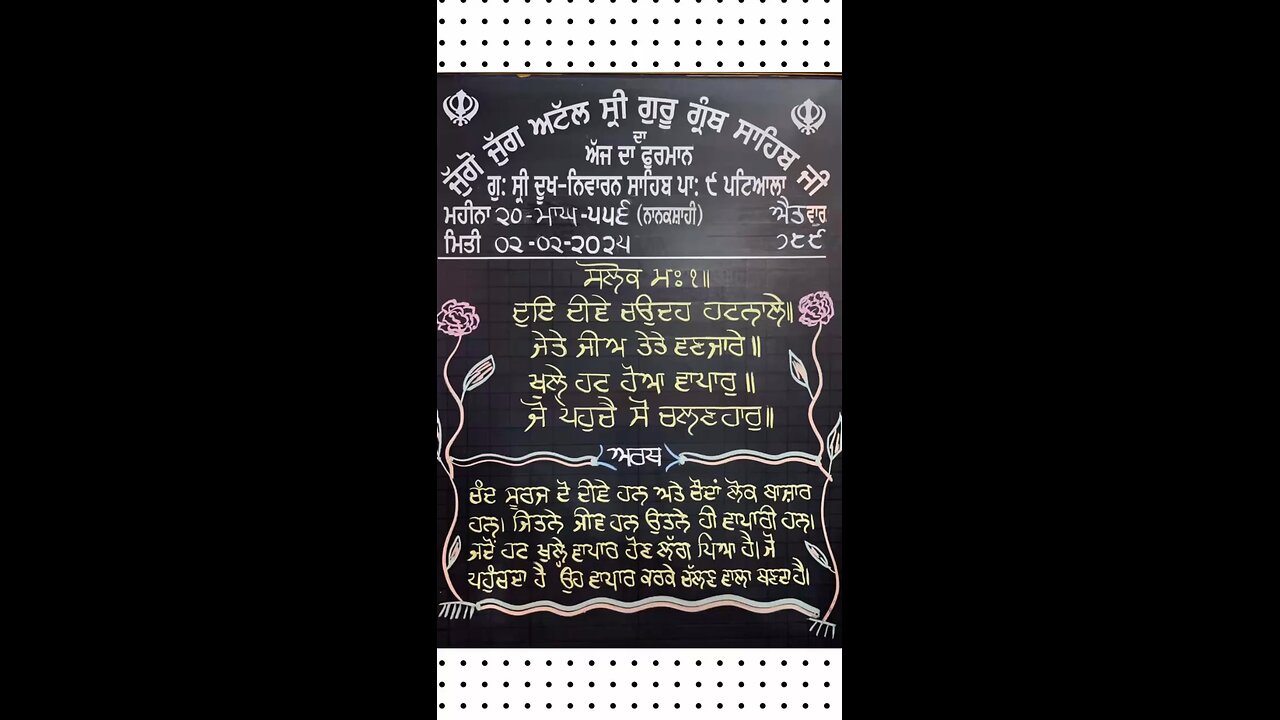 ਜੁੱਗੋ ਜੁੱਗ ਅਟੱਲ ਸ੍ਰੀ ਗੁਰੂ ਗ੍ਰੰਥ ਸਾਹਿਬ ਜੀ
ਦਾ
ਅੱਜ ਦਾ ਫੁਰਮਾਨ
ਗੁ: ਸ੍ਰੀ ਦੂਖ-ਨਿਵਾਰਨ ਸਾਹਿਬ ਪਾ: ੯ ਪਟਿਆਲਾ
ਮਹੀਨਾ ੨੦-ਮਾਘ-੫੫੬ (ਨਾਨਕਸ਼ਾਹੀ) ਐਤਵਾਰ
ਮਿਤੀ ੦੨-੦੨-੨੦੨੫ ੭੮੯
ਸਲੋਕ ਮਃ ੧॥
ਦੁਇ ਦੀਵੇ ਚਉਦਹ ਹਟਨਾਲੇ॥
ਜੇਤੇ ਜੀਅ ਤੇਤੇ ਵਣਜਾਰੇ॥
ਖੁਲ੍ਹੇ ਹਟ ਹੋਆ ਵਾਪਾਰੁ॥
ਜੋ ਪਹੁਚੈ ਸੋ ਚਲਣਹਾਰੁ॥
ਅਰਥ
ਚੰਦ ਸੂਰਜ ਦੋ ਦੀਵੇ ਹਨ ਅਤੇ ਚੌਦਾਂ ਲੋਕ ਬਾਜ਼ਾਰ
ਹਨ। ਜਿਤਨੇ ਜੀਵ ਹਨ ਉਤਨੇ ਹੀ ਵਾਪਾਰੀ ਹਨ।
ਜਦੋਂ ਹਟ ਖੁਲ੍ਹੇ ਵਾਪਾਰ ਹੋਣ ਲੱਗ ਪਿਆ ਹੈ। ਜੋ
ਪਹੁੰਚਦਾ ਹੈ ਉਹ ਵਾਪਾਰ ਕਰਕੇ ਚੱਲਣ ਵਾਲਾ ਬਣਦਾ ਹੈ।